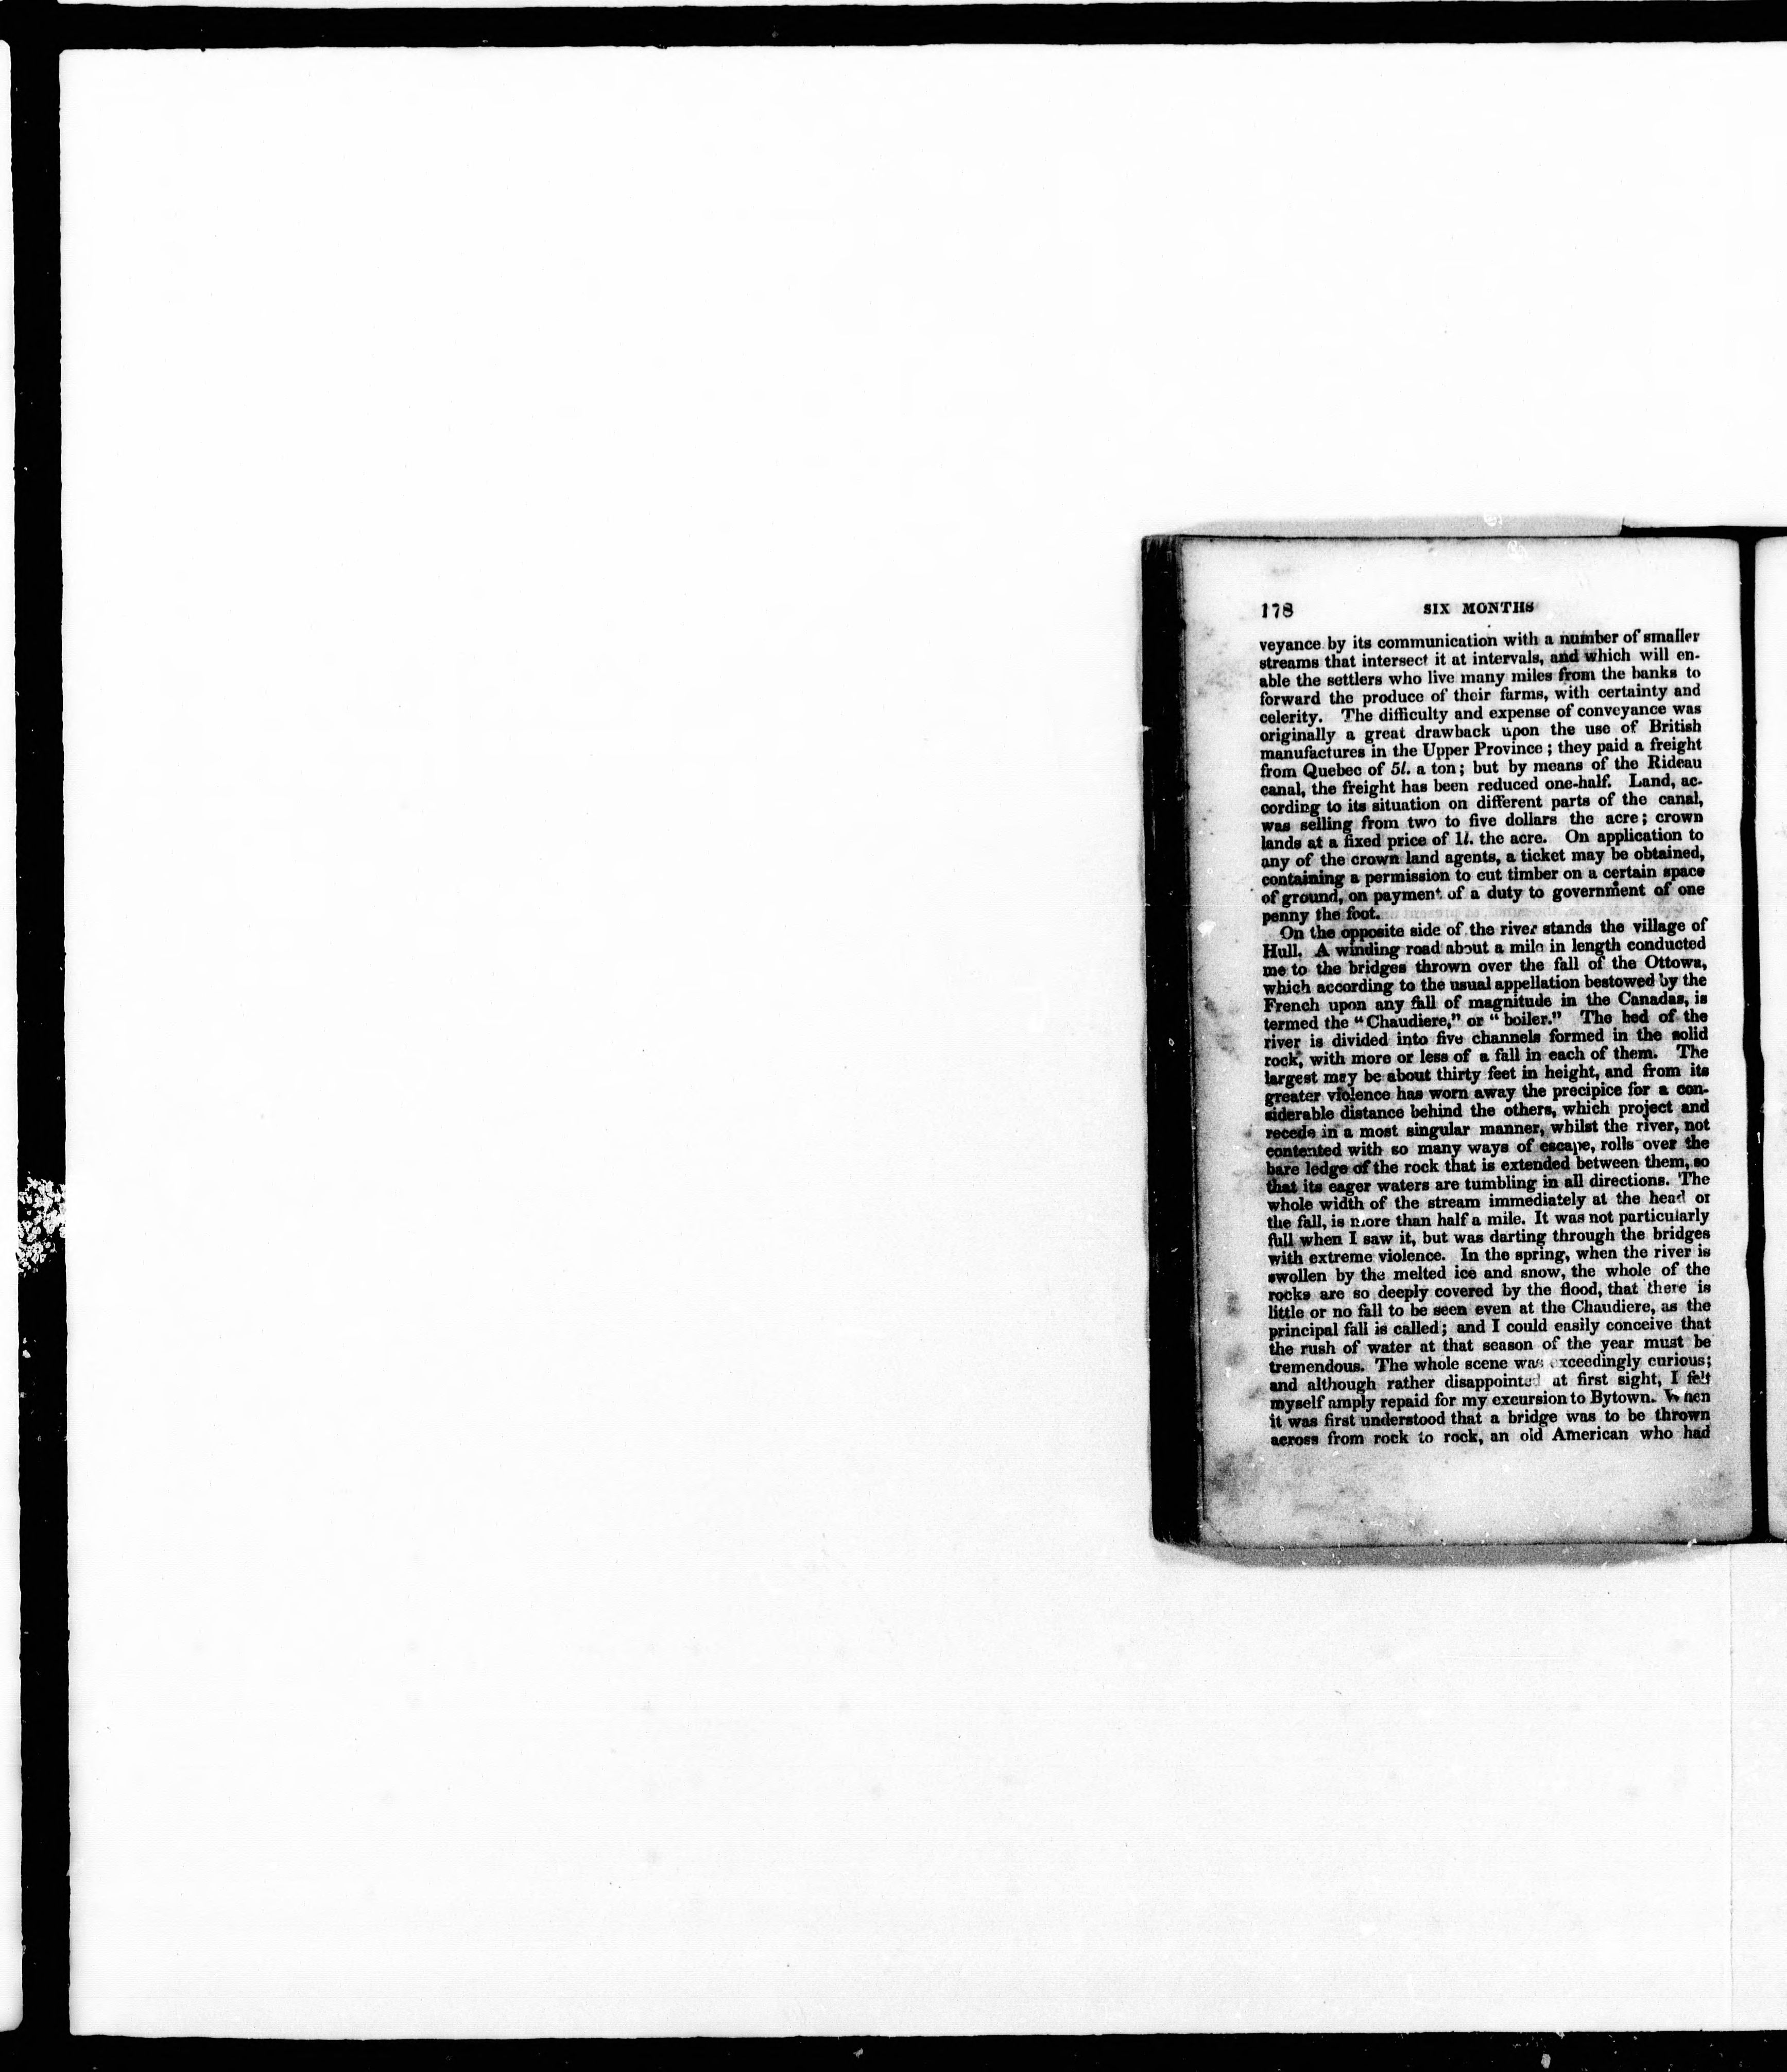 178 SIX MONTHS
veyance by its communication with a number of smaller
streams that intersect it at intervals, and which will en-
able the settlers who live many miles from the banks to
forward the produce of their farms, with certainty and
celerity. The difficulty and expense of conveyance was
originally a great drawback upon the use of British
manufactures in the Upper Province; they paid a freight
from Quebec of 5l. a ton; but by means of the Rideau
canal, the freight has been reduced one-half. Land, ac-
cording to its situation on different parts of the canal,
was selling from two to five dollars the acre; crown
lands at a fixed price of 1l. the acre. On application to
any of the crown land agents, a ticket may be obtained,
containing a permission to cut timber on a certain space
of ground, on payment of a duty to government of one
penny the foot.
On the opposite side of the river stands the village of
Hull. A winding road about a mile in length conducted
me to the bridges thrown over the fall of the Ottowa,
which according to the usual appellation bestowed by the
French upon any fall of magnitude in the Canadas, is
termed the "Chaudiere," or "boiler." The bed of the
river is divided into five channels formed in the solid
rock, with more or less of a fall in each of them. The
largest may be about thirty feet in height, and from its
greater violence has worn away the precipice for a con-
siderable distance behind the others, which project and
recede in a most singular manner, whilst the river, not
contented with so many ways of escape, rolls over the
bare ledge of the rock that is extended between them, so
that its eager waters are tumbling in all directions. The
whole width of the stream immediately at the head of
the fall, is more than half a mile. It was not particularly
full when I saw it, but was darting through the bridges
with extreme violence. In the spring, when the river is
swollen by the melted ice and snow, the whole of the
rocks are so deeply covered by the flood, that there is
little or no fall to be seen even at the Chaudiere, as the
principal fall is called; and I could easily conceive that
the rush of water at that season of the year must be
tremendous. The whole scene was exceedingly curious;
and although rather disappointed at first sight, I felt
myself amply repaid for my excursion to Bytown. When
it was first understood that a bridge was to be thrown
across from rock to rock, an old American who had